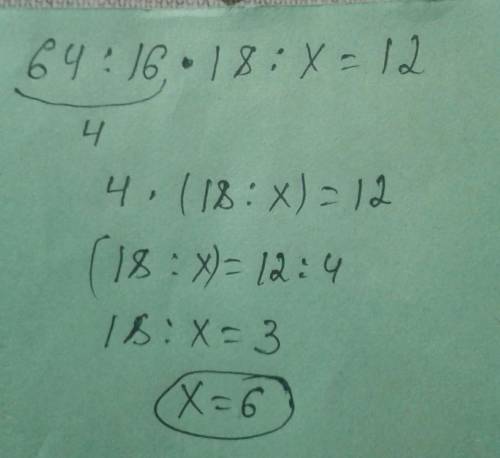 64 : 16 · 18 : x = 12
4
4 · (18 : x) = 12
(18 : x) = 12 : 4
18 : x = 3
x = 6